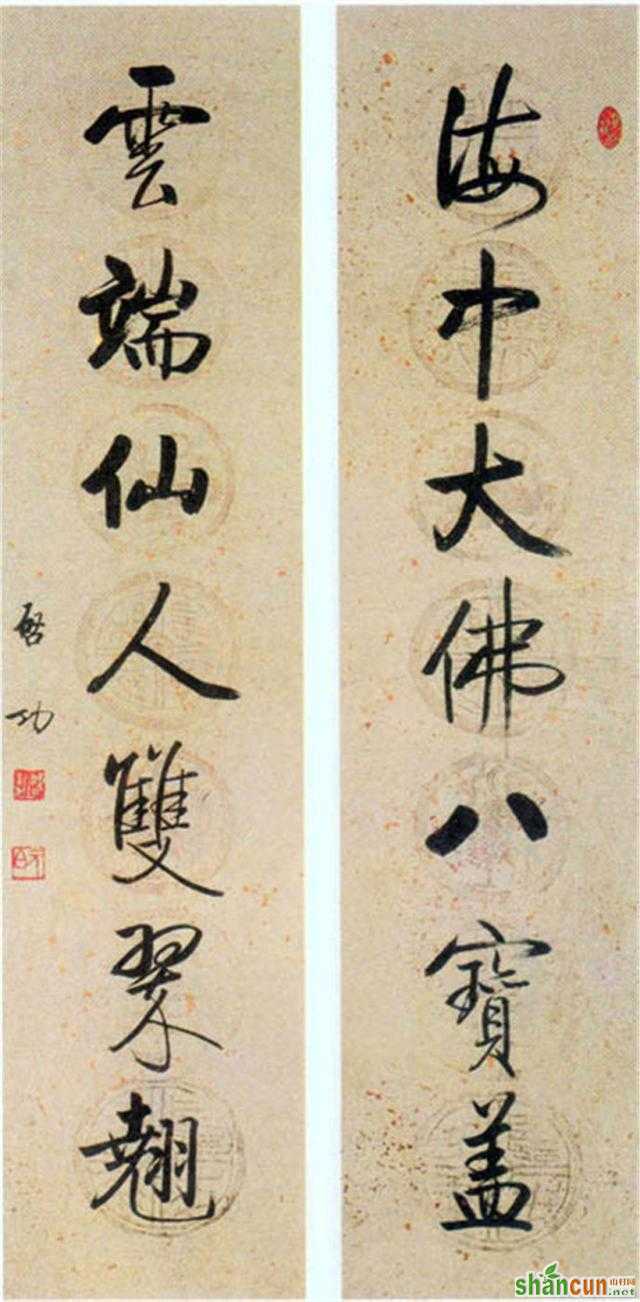 海中大佛八寶盖
雲端仙人雙翠翹
啓功
shancun 山村网
.net